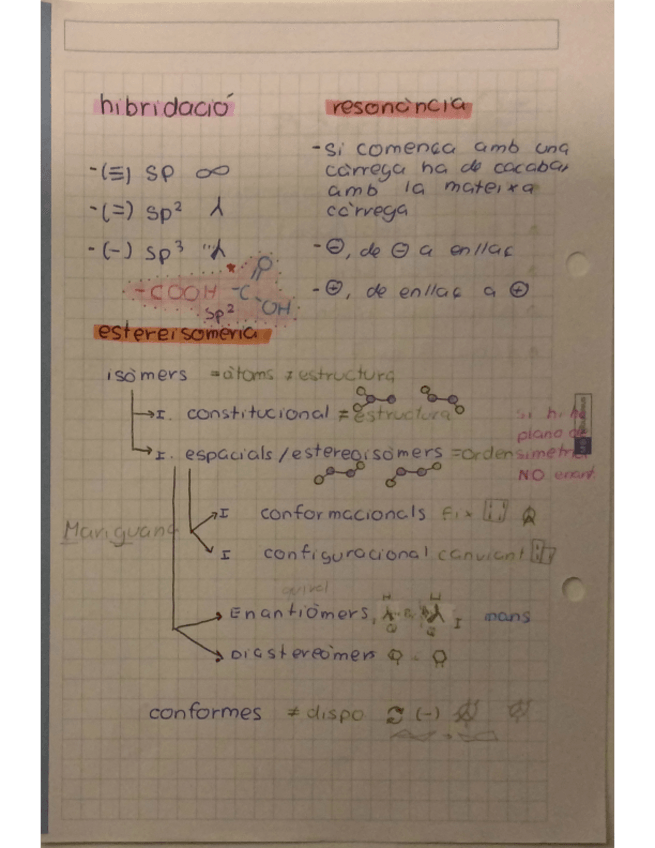 hibridació
-(≡) sp
-(=) sp²
-(-) sp³
-COOH -C O OH
sp²
resonància
-Si comença amb una
càrrega ha de cacabar
amb la mateixa
càrrega
-⊖, de ⊖ a enllaç
-⊕, de enllaç a ⊕
estereisomeria
isòmers =àtoms ≠estructura
I. constitucional ≠ estructura
I. espacials/estereoisòmers =orden
si hi ha
plano de
simetria
NO enant.
I conformacionals Fix
I configuracional canviant
Mariguana
quiral
Enantiòmers, I mans
Diastereòmers
conformes ≠ dispo (-)